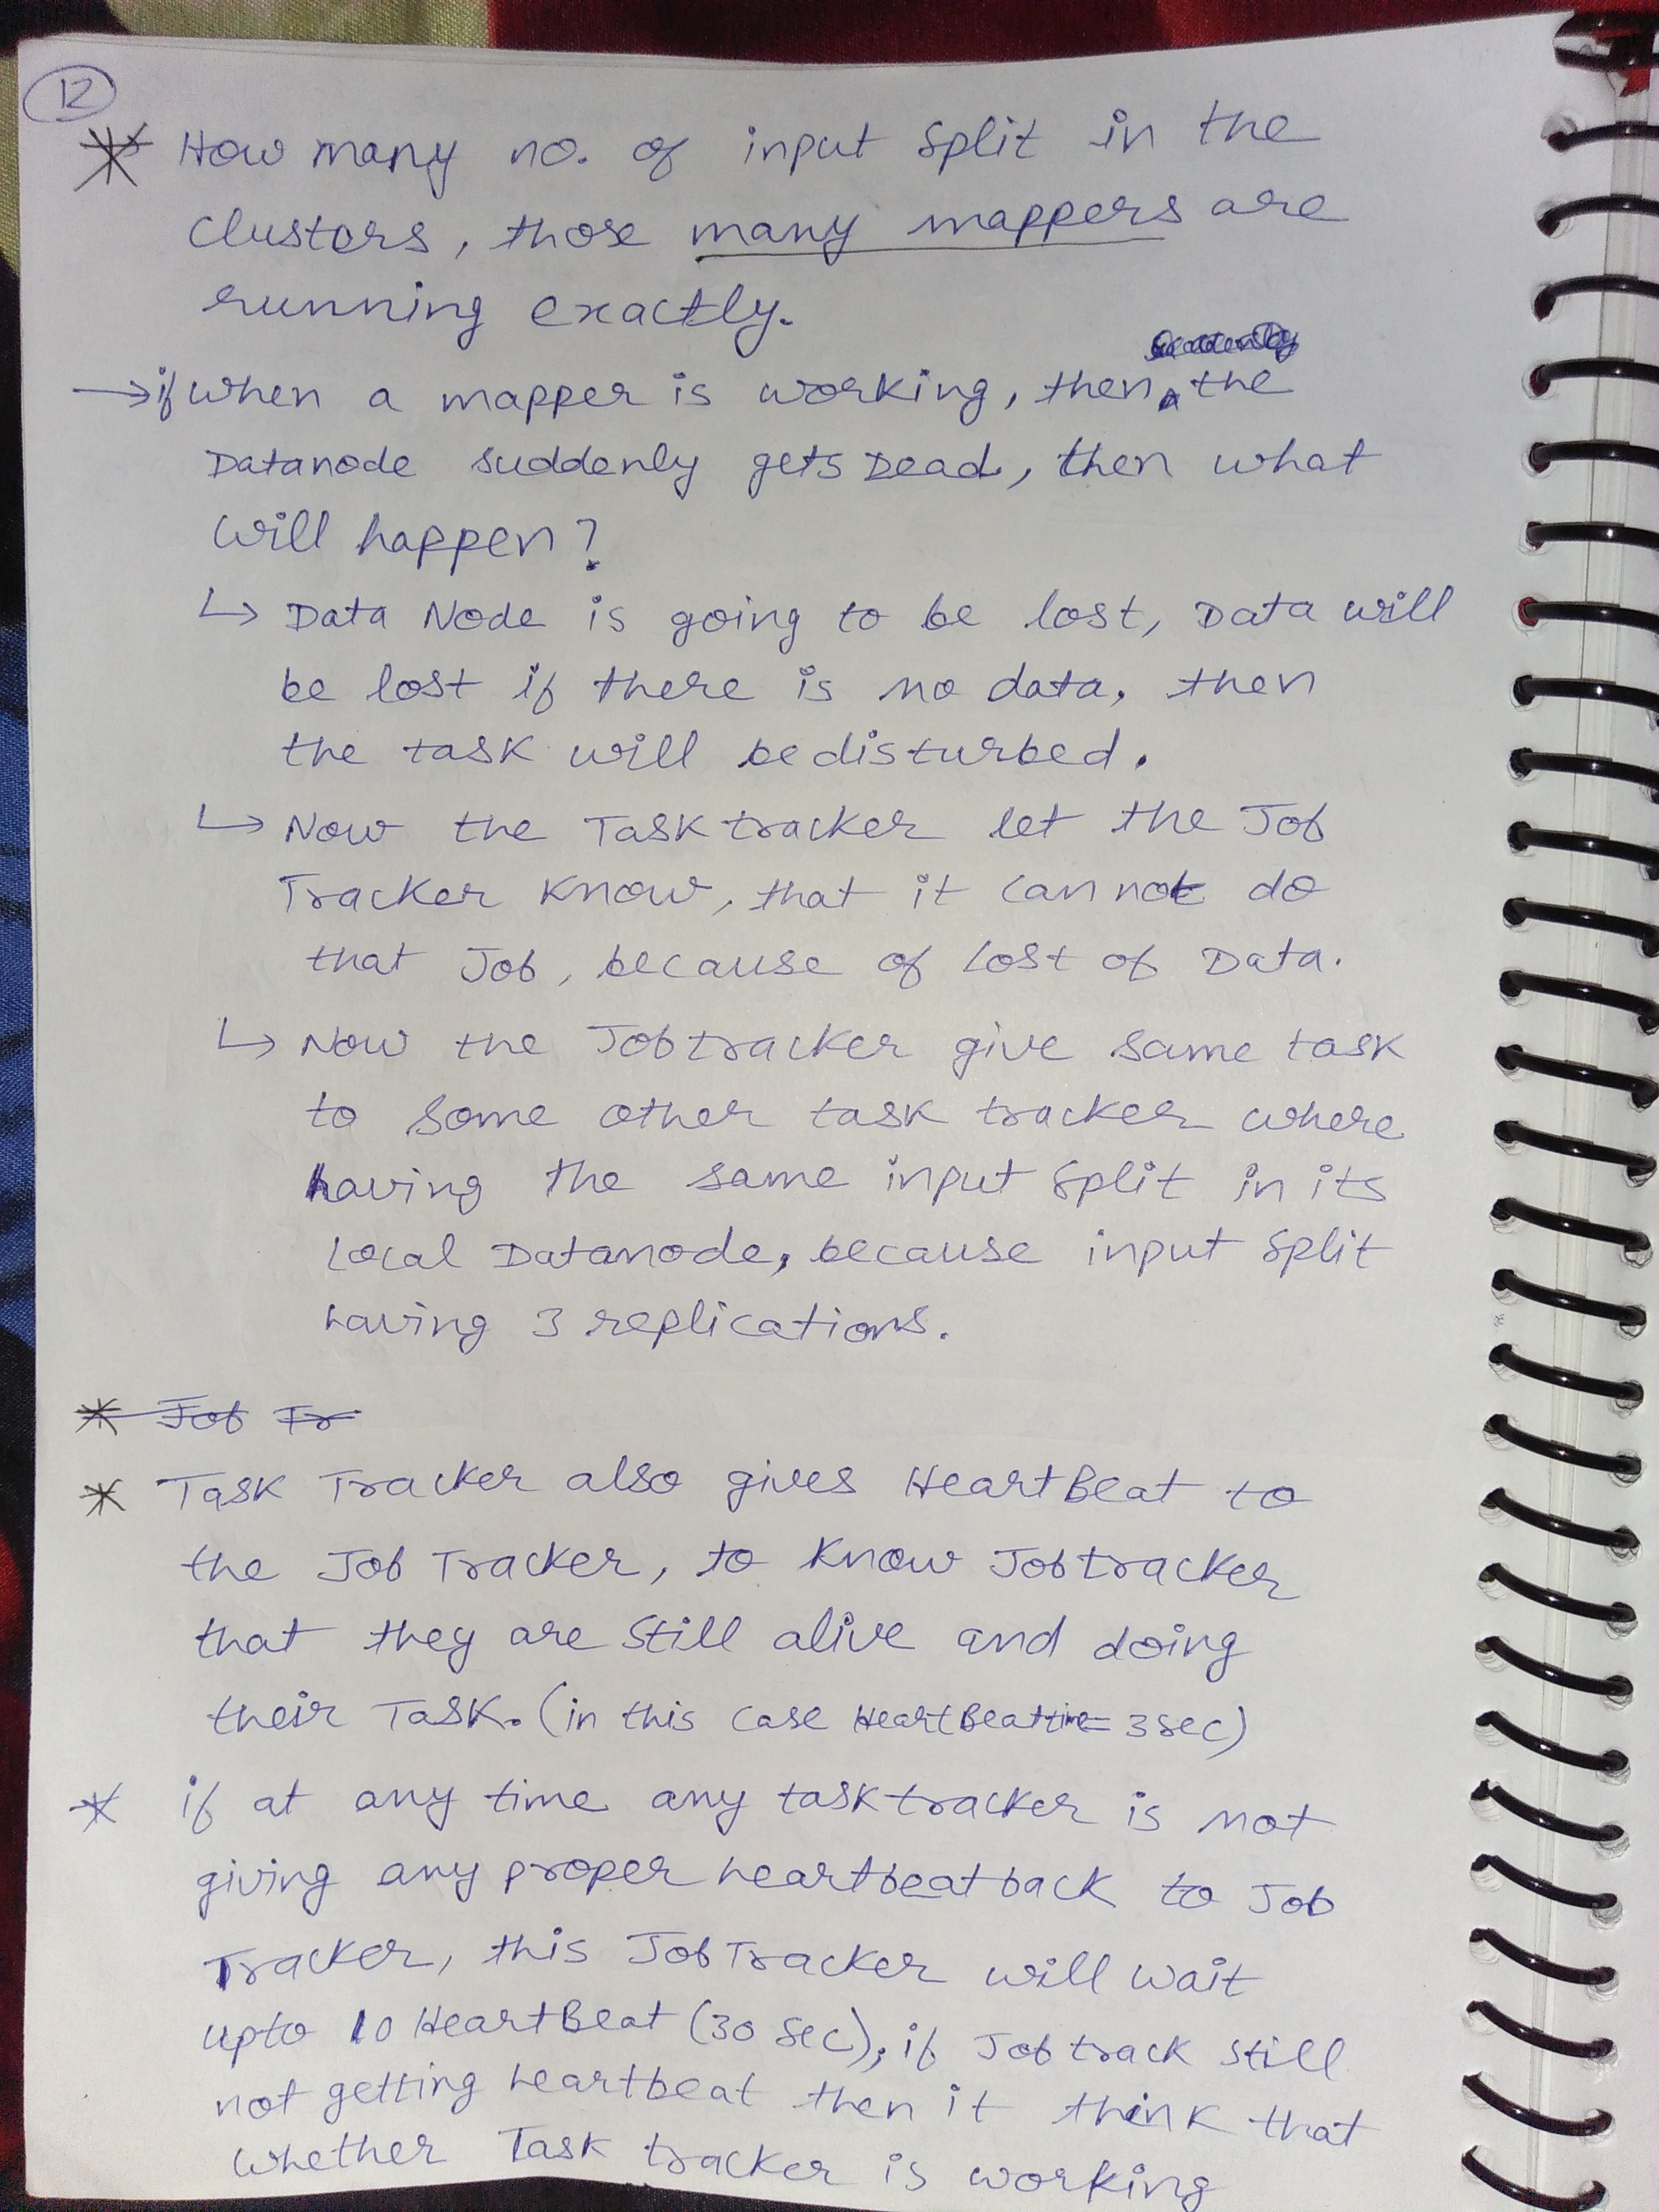 12
* How many no. of input split in the
Clusters, those many mappers are
running exactly.
→ if when a mapper is working, then the
Datanode suddenly gets Dead, then what
will happen?
↳ Data Node is going to be lost, Data will
be lost if there is no data, then
the task will be disturbed.
↳ Now the Task tracker let the Job
Tracker know, that it can not do
that Job, because of Lost of Data.
↳ Now the Jobtracker give same task
to some other task tracker where
having the same input split in its
Local Datanode, because input split
having 3 replications.
* Job Tr
* Task Tracker also gives HeartBeat to
the Job Tracker, to know Jobtracker
that they are still alive and doing
their Task. (in this case HeartBeat time = 3 sec)
* if at any time any task tracker is not
giving any proper heartbeat back to Job
Tracker, this JobTracker will wait
upto 10 HeartBeat (30 sec), if Jobtrack still
not getting heartbeat then it think that
whether Task tracker is working